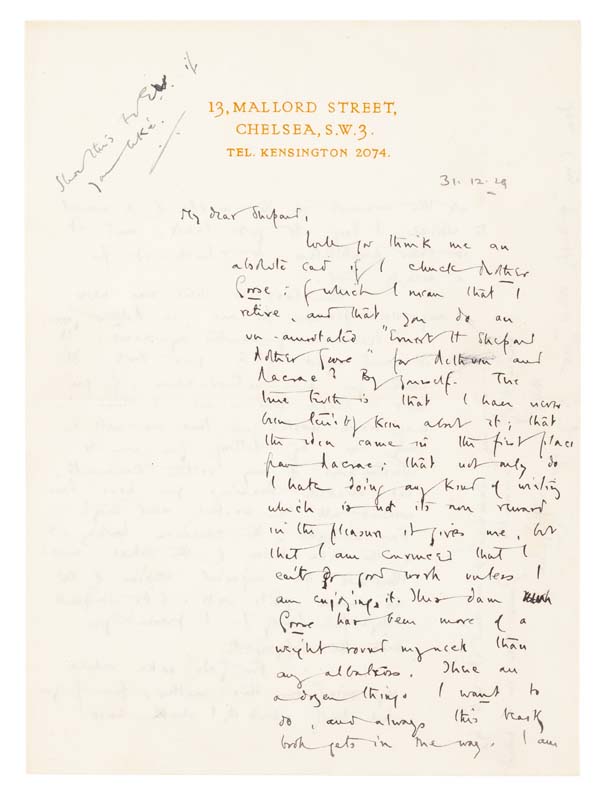 Show this to E.V. if
you like.
13, MALLORD STREET,
CHELSEA, S.W.3.
TEL. KENSINGTON 2074.
31.12.29
My dear Shepard,
Will you think me an
absolute cad if I chuck Mother
Goose: by which I mean that I
retire, and that you do an
un-annotated "Ernest H Shepard
Mother Goose" for Methuen and
Macrae? By yourself. The
true truth is that I have never
been terribly keen about it; that
the idea came in the first place
from Macrae; that not only do
I hate doing any kind of writing
which is not its own reward
in the pleasure it gives me, but
that I am convinced that I
can't do good work unless I
am enjoying it. This damn
Goose has been more of a
weight round my neck than
any albatross. There are
a dozen things I want to
do, and always this beastly
book gets in the way. I am